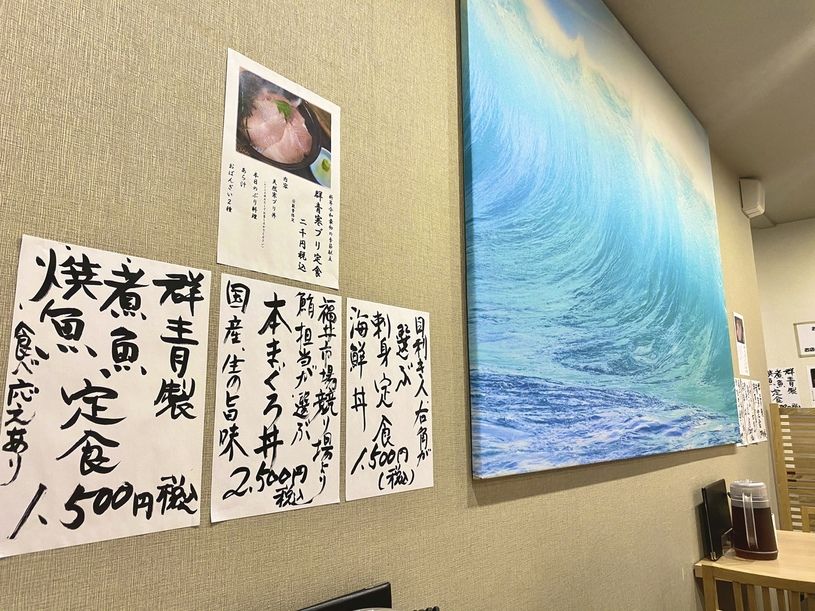 群青寒ブリ定食
二千円税込
内容
天然寒ブリ丼
本日のぶり料理
あら汁
おばんざい2種
目利き人右角が
選ぶ
刺身定食
海鮮丼
1.500円
(税込)
福井市場競り場より
鮪担当が選ぶ
本まぐろ丼
国産、生の旨味
2.500円
税込
群青製
煮魚
焼魚、定食
食べ応えあり
1.500円税込
群青製
煮魚定食